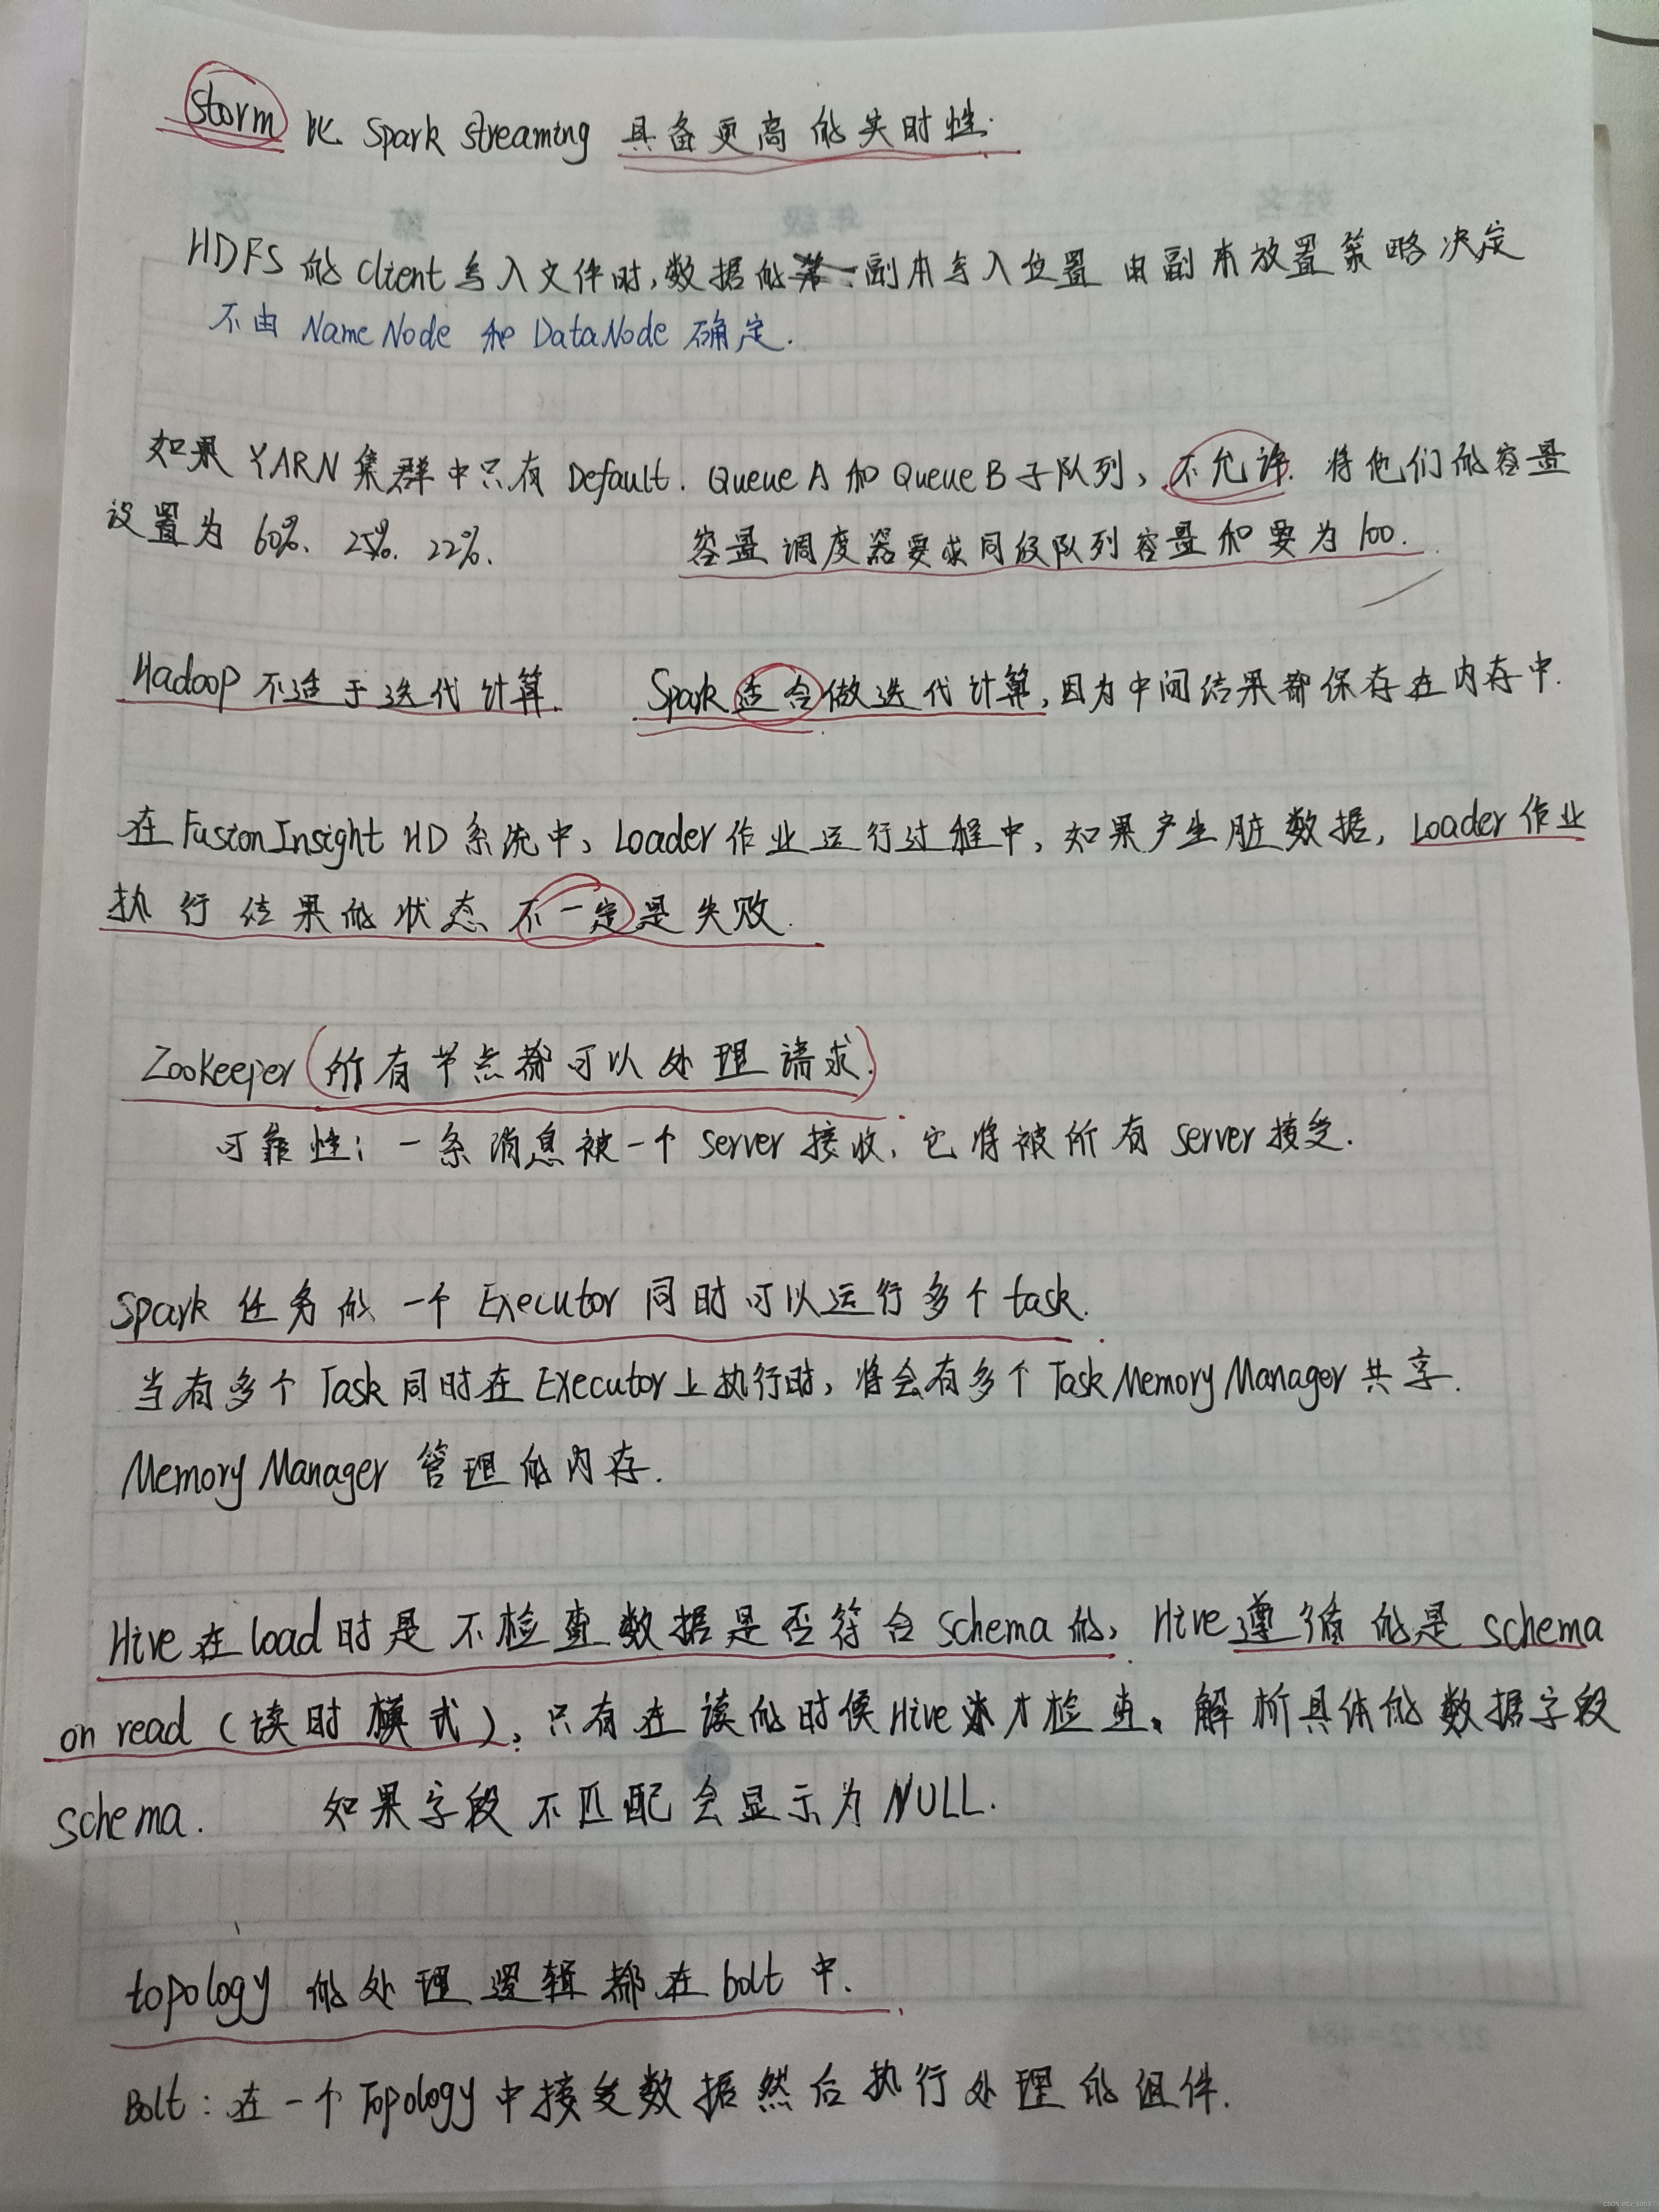 Storm 比 Spark Streaming 具备更高的实时性.
姓名 年级 班 第 次
HDFS 的 client 写入文件时,数据的第一副本写入位置 由副本放置策略决定
不由 NameNode 和 DataNode 确定.
如果 YARN 集群中只有 Default. Queue A 和 Queue B 子队列, 不允许. 将他们的容量
设置为 60%、25%、22%. 容量调度器要求同级队列容量和要为 100.
Hadoop 不适于迭代计算. Spark 适合做迭代计算,因为中间结果都保存在内存中.
在 FusionInsight HD 系统中, Loader 作业运行过程中, 如果产生脏数据, Loader 作业
执行结果的状态 不一定是失败.
Zookeeper (所有节点都可以处理请求.)
可靠性: 一条消息被一个 server 接收, 它将被所有 server 接受.
Spark 任务的一个 Executor 同时可以运行多个 task.
当有多个 Task 同时在 Executor 上执行时, 将会有多个 Task Memory Manager 共享.
Memory Manager 管理的内存.
Hive 在 load 时是不检查数据是否符合 schema 的, Hive 遵循的是 schema
on read (读时模式), 只有在读的时候 Hive 才检查、解析具体的数据字段
schema. 如果字段不匹配会显示为 NULL.
topology 的处理逻辑都在 bolt 中.
22×22=484
Bolt: 在一个 Topology 中接受数据然后执行处理的组件.